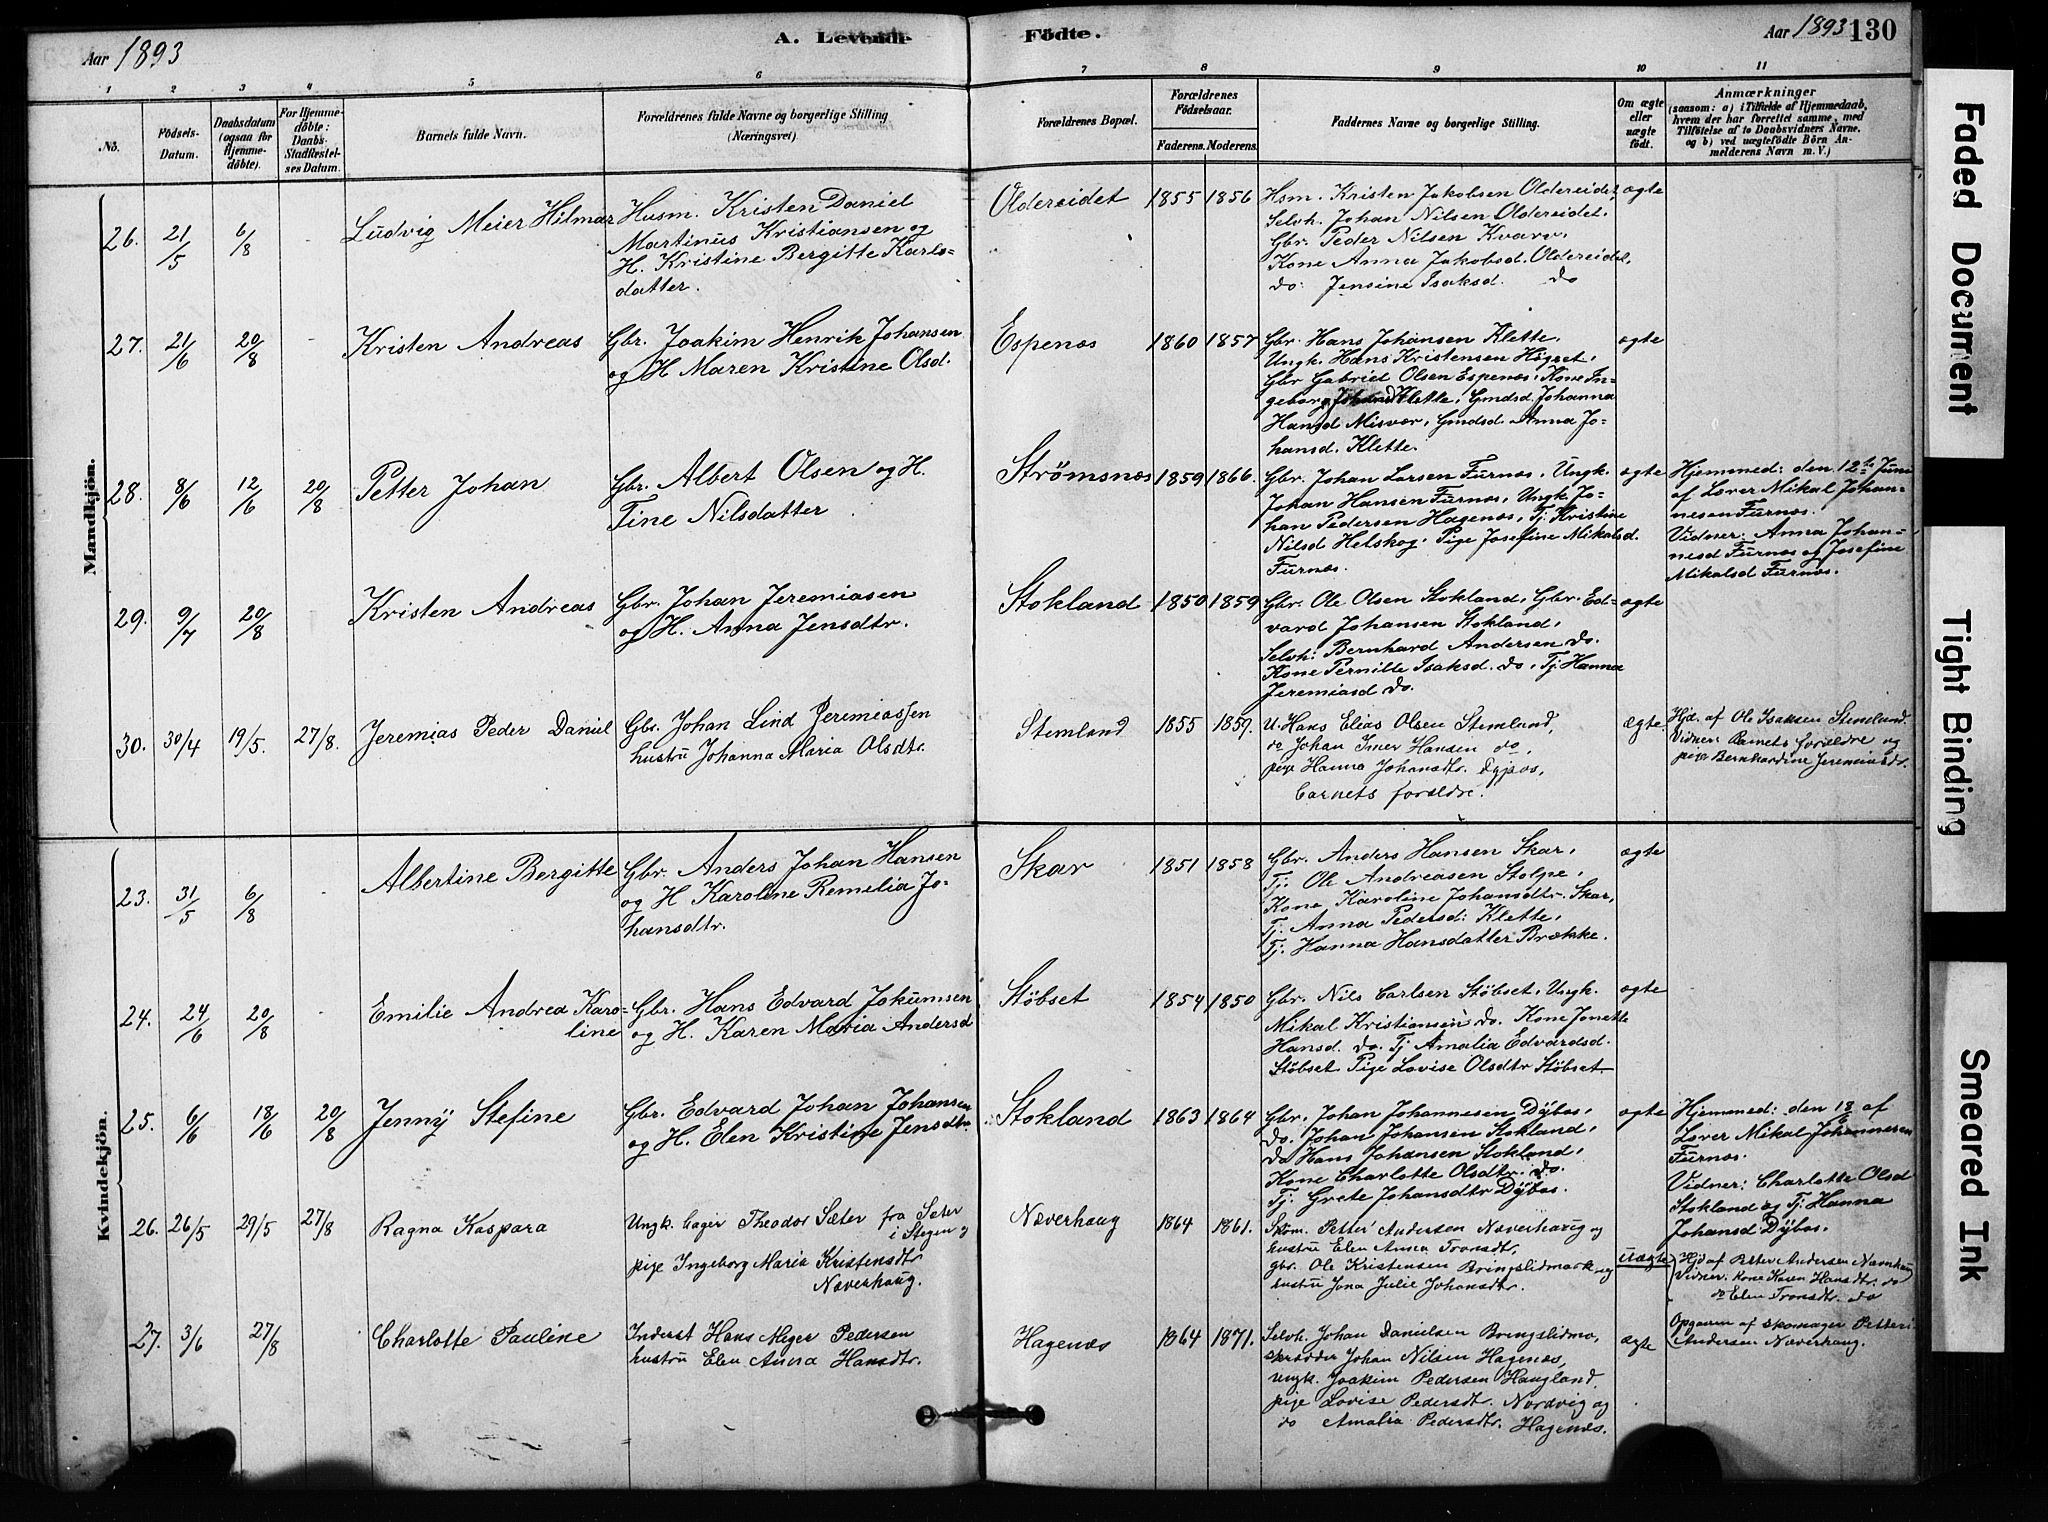 Aar 1893
A. Levende Födte.
Aar 1893 130
1 2 3 4 5 6 7 8 9 10 11
No.
Födsels-Datum.
Daabsdatum (ogsaa for Hjemmedöbte).
For Hjemmedöbte: Daabs-Stadfæstelses Datum.
Barnets fulde Navn.
Forældrenes fulde Navne og borgerlige Stilling (Næringsvei)
Forældrenes Bopæl.
Forældrenes Födselsaar.
Faderens. Moderens.
Faddernes Navne og borgerlige Stilling.
Om ægte eller uægte födt.
Anmærkninger
(saasom: a) i Tilfælde af Hjemmedaab, hvem der har forrettet samme, med Tilföielse af to Daabsvidners Navne, og b) ved uægtefödte Börn Anmelderens Navn m. V.)
Mandkjön.
26. 21/5 6/8 - Ludvig Meier Hilmar
Husm. Kristen Daniel
Martinus Kristiansen og
H. Kristine Bergitte Karls-
datter.
Oldereidet 1855 1856
Hsm. Kristen Jakobsen Oldereidet,
Selvh. Johan Nilsen Oldereidet.
Gbr. Peder Nilsen Kvarv.
Kone Anna Jakobsd. Oldereidet,
do. Jensine Isaksd. do
ægte
27. 21/6 20/8 - Kristen Andreas
Gbr. Joakim Henrik Johansen
og H Maren Kristine Olsd.
Espenæs 1860 1857
Gbr. Hans Johansen Klette,
Ungk. Hans Kristensen
Gbr Gabriel Olsen Espenæs, Kone In-
geborg Klette, Gmdsd Johanna
Hansd Misvær, Gmdsd. Anna Jo-
hansd. Klette.
ægte
28. 8/6 12/6 20/8 Petter Johan
Gbr. Albert Olsen og H.
Tine Nilsdatter
Strømsnæs 1859 1866.
Gbr. Johan Larsen Furnæs, Ungk.
Johan Hansen Furnæs, Ungk Jo-
han Pedersen Hagenæs, Tj. Kristine
Nilsd Helskog, Pige Josefine Mikalsd.
Furnæs.
ægte
Hjemmed: den 12te Juni
af Lærer Mikal Johan-
nesen Furnæs.
Vidner: Anna Johan-
nesd Furnæs og Josefine
Mikalsd Furnæs.
29. 9/7 20/8 Kristen Andreas
Gbr. Johan Jeremiasen
og H. Anna Jensdtr.
Stokland 1850 1859
Gbr. Ole Olsen Stokland, Gbr. Ed-
vard Johansen Stokland,
Selvh: Bernhard Andersen do.
Kone Pernille Isaksd. do, Tj. Hanna
Jeremiasd do.
ægte
30. 30/4 19/5. 27/8. Jeremias Peder Daniel
Gbr. Johan Lind Jeremiassen
hustru Johanna Maria Olsdtr.
Stemland 1855 1859.
U. Hans Elias Olsen Stemland,
do Johan Imer Hansen do,
pige Hanna Johansdtr. Dypos,
barnets forældre.
ægte.
Hjd. af Ole Isaksen Stemland.
Vidner: Barnets forældre og
pige Bernhardine Jeremiasdtr.
Kvindekjön.
23. 31/5 6/8 - Albertine Bergitte
Gbr. Anders Johan Hansen
og H Karoline Remelia Jo-
hansdtr.
Skar 1851 1858
Gbr. Anders Hansen Skar,
Tj. Ole Andreasen Stolpe,
Kone Karoline Johansdtr. Skar,
Tj. Anna Pedersd: Klette,
Tj. Hanna Hansdatter Brække.
ægte
24. 24/6 20/8 - Emilie Andrea Karo-
line
Gbr. Hans Edvard Jokumsen
og H. Karen Maria Andersd
Støbset 1854 1850
Gbr. Nils Carlsen Støbset, Ungk.
Mikal Kristiansen do. Kone Jonette
Hansd. do. Tj Amalia Edvardsd.
Støbset Pige Lovise Olsdtr Støbset.
ægte
25. 6/6 18/6 20/8 Jenny Stefine
Gbr. Edvard Johan Johansen
og H. Elen Kristine Jensdtr
Stokland 1863 1864
Gbr. Johan Johannesen Dybos,
do. Johan Johansen Stokland,
do Hans Johansen Stokland,
Kone Charlotte Olsdtr. do.
Tj. Grete Johansdtr Dybos.
ægte
Hjemmed: den 18/6 af
Lærer Mikal Johannesen
Furnæs.
Vidner: Charlotte Olsd
Stokland og Tj. Hanna
Johansd: Dybos.
26. 26/5 29/5 27/8 Ragna Kaspara
Ungk. bager Theodor Sæter fra Sæter
i Stegen og
pige Ingeborg Maria Kristensdtr
Næverhaug.
Næverhaug 1864 1861.
Skom. Petter Andersen Næverhaug og
hustru Elen Anna Tronsdtr,
gbr. Ole Kristensen Bringslidmark og
hustru Jona Julie Johansdtr.
uægte
Hjd af Petter Andersen Næverhaug
Vidner: kone Karen Hansdtr. do
do Elen Tronsdtr. do
Opgaven af skomager Petter
Andersen Næverhaug.
27. 3/6 27/8 Charlotte Pauline
Inderst Hans Meyer Pedersen
hustru Elen Anna Hansdtr.
Hagenæs 1864 1871.
Selvh. Johan Danielsen Bringslidmo,
skrædder Johan Nilsen Hagenæs,
ungk. Joakim Pedersen Haugland,
pige Lovise Pedersdtr. Nordvig og
do Amalia Pedersdtr. Hagenæs.
ægte
Faded Document
Tight Binding
Smeared Ink